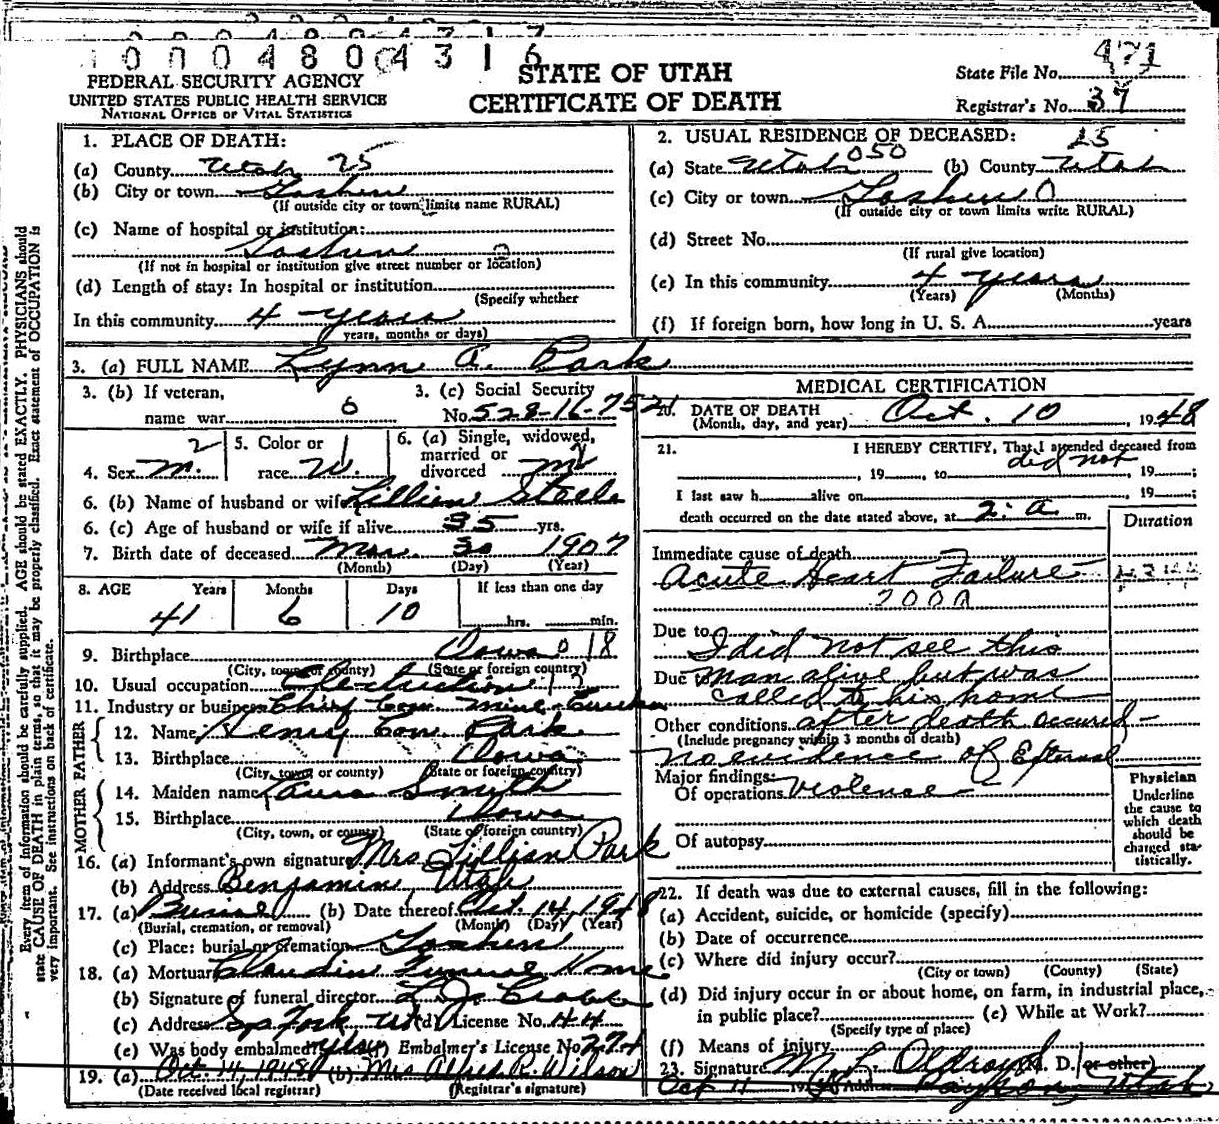 0 0 0 4 8 0 4 3 1 6
FEDERAL SECURITY AGENCY
UNITED STATES PUBLIC HEALTH SERVICE
NATIONAL OFFICE OF VITAL STATISTICS
STATE OF UTAH
CERTIFICATE OF DEATH
State File No. 471
Registrar's No. 37
1. PLACE OF DEATH:
(a) County Utah 25
(b) City or town Goshen
(If outside city or town limits name RURAL)
(c) Name of hospital or institution:
Goshen
(If not in hospital or institution give street number or location)
(d) Length of stay: In hospital or institution
(Specify whether
In this community 4 years
years, months or days)
2. USUAL RESIDENCE OF DECEASED: 25
(a) State Utah 050 (b) County Utah
(c) City or town Goshen 0
(If outside city or town limits write RURAL)
(d) Street No.
(If rural give location)
(e) In this community 4 years
(Years) (Months)
(f) If foreign born, how long in U. S. A. years
3. (a) FULL NAME Lynn A. Park
3. (b) If veteran,
name war 0
3. (c) Social Security
No. 528-16-7521
4. Sex M. 2
5. Color or
race W. 1
6. (a) Single, widowed,
married or
divorced M 2
6. (b) Name of husband or wife Lillian Steele
6. (c) Age of husband or wife if alive 35 yrs.
7. Birth date of deceased Mar. 30 1907
(Month) (Day) (Year)
8. AGE Years Months Days If less than one day
41 6 10 hrs. min.
9. Birthplace Iowa 0 18
(City, town or county) (State or foreign country)
10. Usual occupation Electrician
11. Industry or business Chief Con. Mine-Eureka
FATHER
12. Name Henry Park
13. Birthplace Iowa
(City, town or county) (State or foreign country)
MOTHER
14. Maiden name Laura Smyth
15. Birthplace Iowa
(City, town, or county) (State of foreign country)
16. (a) Informant's own signature Mrs Lillian Park
(b) Address Benjamin, Utah
17. (a) Burial (b) Date thereof Oct. 14, 1948
(Burial, cremation, or removal) (Month) (Day) (Year)
(c) Place: burial or cremation Goshen
18. (a) Mortuary Claudin Funeral Home
(b) Signature of funeral director
(c) Address Sp. Fork Ut (d) License No. 44
(e) Was body embalmed? yes (f) Embalmer's License No. 274
19. (a) Oct. 14, 1948 (b) Mrs Alfred R. Wilson
(Date received local registrar) (Registrar's signature)
MEDICAL CERTIFICATION
20. DATE OF DEATH
(Month, day, and year) Oct. 10, 1948
21. I HEREBY CERTIFY, That I attended deceased from
did not
, 19 to , 19 ;
I last saw h alive on , 19 ;
death occurred on the date stated above, at 2: a m.
Duration
Immediate cause of death
Acute Heart Failure
200A
Due to I did not see this
Due to man alive but was
called to his home
Other conditions after death occured-
(Include pregnancy within 3 months of death)
no evidence of External
Major findings:
Of operations violence-
Of autopsy
Physician
Underline
the cause to
which death
should be
charged sta-
tistically.
22. If death was due to external causes, fill in the following:
(a) Accident, suicide, or homicide (specify)
(b) Date of occurrence
(c) Where did injury occur?
(City or town) (County) (State)
(d) Did injury occur in or about home, on farm, in industrial place,
in public place? (e) While at Work?
(Specify type of place)
(f) Means of injury
23. Signature M. L. Oldroyd (M. D. or other)
Oct 11 1948 Address Payson, Utah
Every item of information should be carefully supplied. AGE should be stated EXACTLY. PHYSICIANS should
state CAUSE OF DEATH in plain terms, so that it may be properly classified. Exact statement of OCCUPATION is
very important. See instructions on back of certificate.